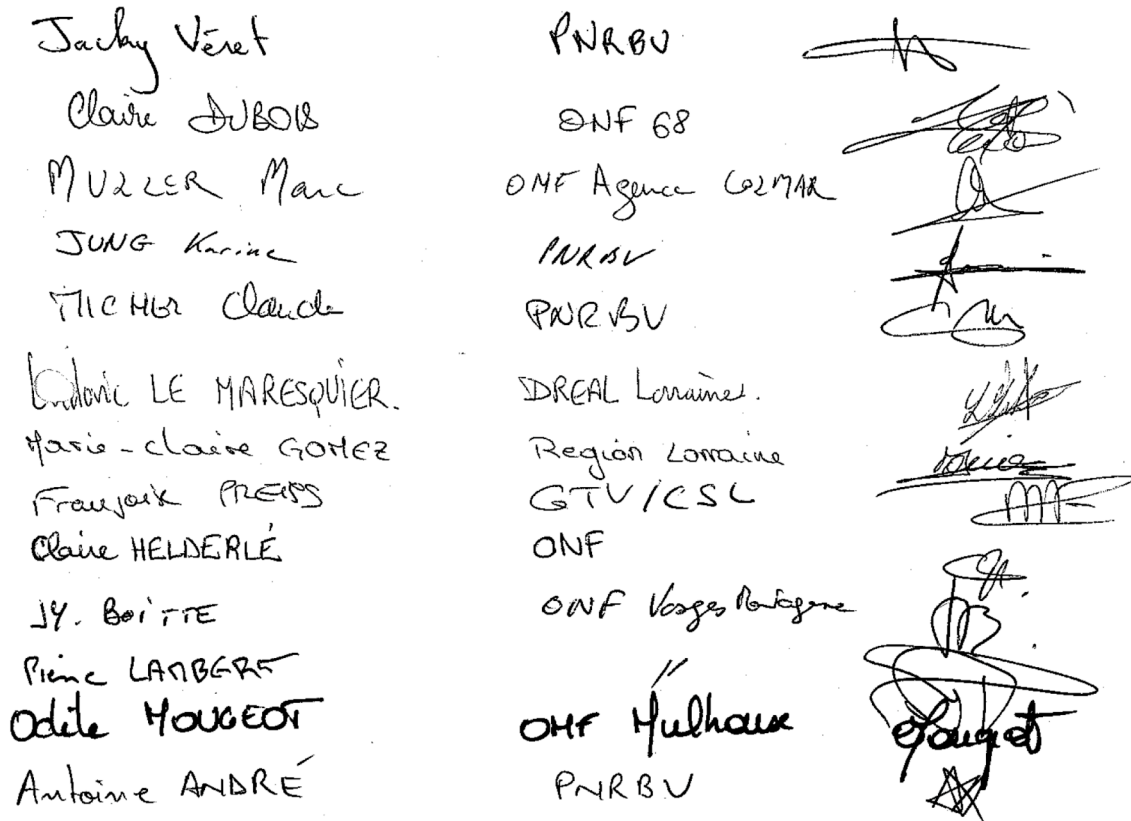 Jacky Véret PNRBV
Claire DUBOIS ONF 68
MULLER Marc ONF Agence COLMAR
JUNG Karine PNRBV
MICHEL Claude PNRBV
Ludovic LE MARESQUIER. DREAL Lorraine.
Marie-Claire GOMEZ Région Lorraine
PREISS GTV/CSL
Claire HELDERLÉ ONF
JY. BOÎTTE ONF Vosges Montagne
Pierre LAMBERT "
Odile MOUGEOT ONF Mulhouse Mougeot
Antoine ANDRÉ PNRBV